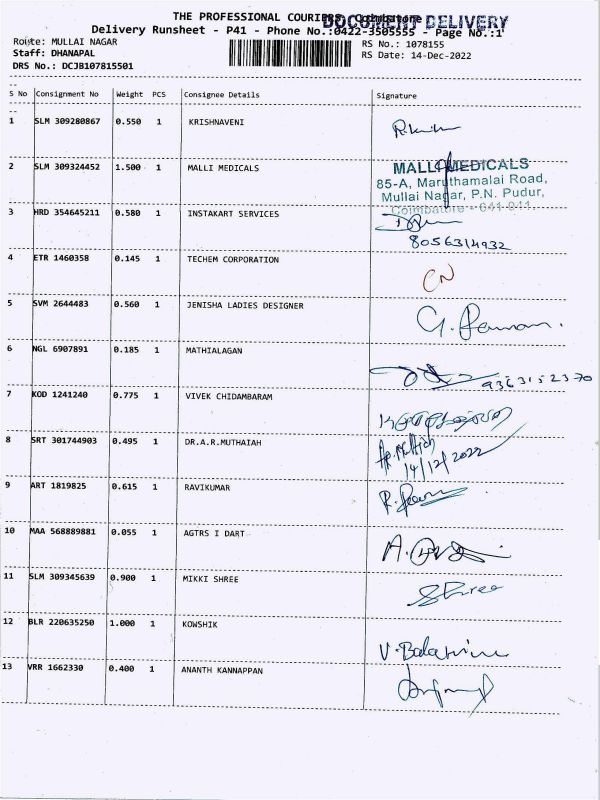 THE PROFESSIONAL COURIERS, Coimbatore
DOCUMENT DELIVERY
Delivery Runsheet - P41 - Phone No.:0422-3505555 - Page No.:1
Route: MULLAI NAGAR
RS No.: 1078155
Staff: DHANAPAL
RS Date: 14-Dec-2022
DRS No.: DCJB107815501
S No Consignment No Weight PCS Consignee Details Signature
1 SLM 309280867 0.550 1 KRISHNAVENI
2 SLM 309324452 1.500 1 MALLI MEDICALS
MALLI MEDICALS
85-A, Maruthamalai Road,
Mullai Nagar, P.N. Pudur,
Coimbatore - 641 041.
3 HRD 354645211 0.580 1 INSTAKART SERVICES
8056314932
4 ETR 1460358 0.145 1 TECHEM CORPORATION
CN
5 SVM 2644483 0.560 1 JENISHA LADIES DESIGNER
6 NGL 6907891 0.185 1 MATHIALAGAN
9363152370
7 KOD 1241240 0.775 1 VIVEK CHIDAMBARAM
8 SRT 301744903 0.495 1 DR.A.R.MUTHAIAH
14/12/2022
9 ART 1819825 0.615 1 RAVIKUMAR
10 MAA 568889881 0.055 1 AGTRS I DART
11 SLM 309345639 0.900 1 MIKKI SHREE
Shree
12 BLR 220635250 1.000 1 KOWSHIK
13 VRR 1662330 0.400 1 ANANTH KANNAPPAN